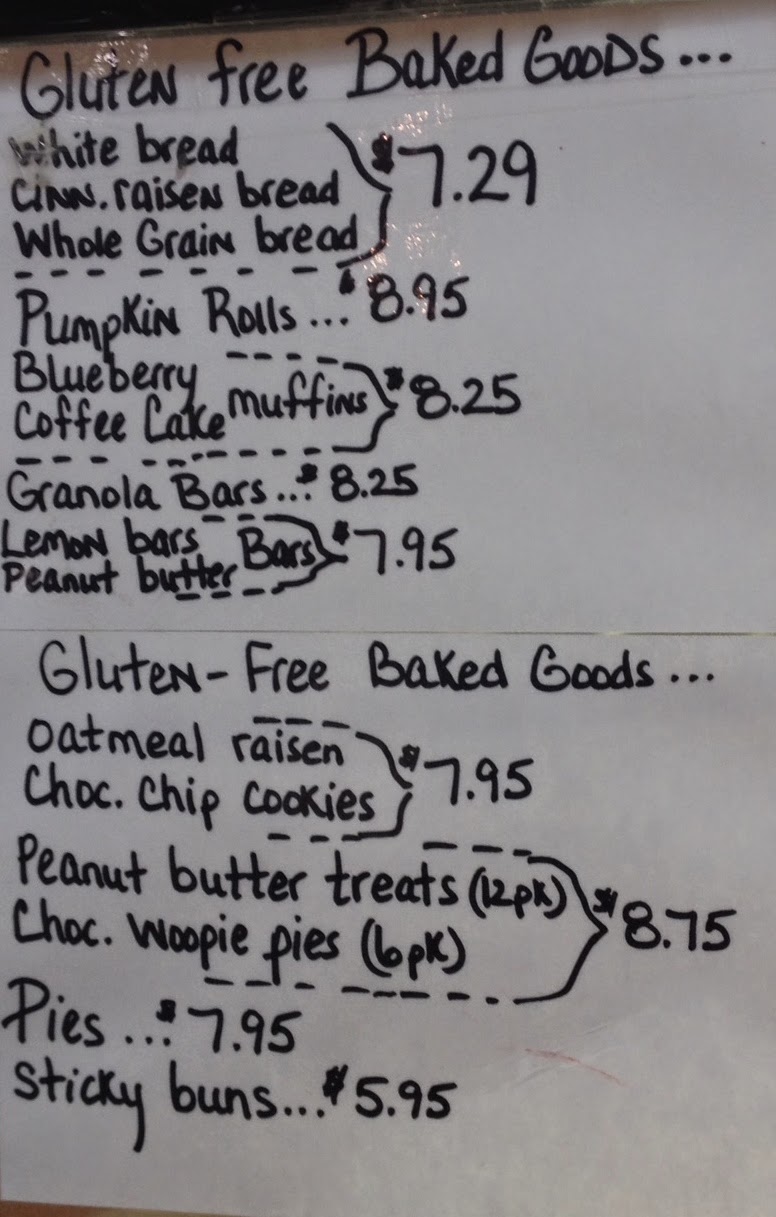 Gluten free Baked Goods...
White bread
Cinn. raisen bread $7.29
Whole Grain bread
Pumpkin Rolls... $8.95
Blueberry
Coffee Cake muffins $8.25
Granola Bars... $8.25
Lemon bars
Peanut butter Bars $7.95
Gluten-Free Baked Goods...
Oatmeal raisen
Choc. Chip Cookies $7.95
Peanut butter treats (12pk)
Choc. Woopie pies (6pk) $8.75
Pies... $7.95
Sticky buns... $5.95